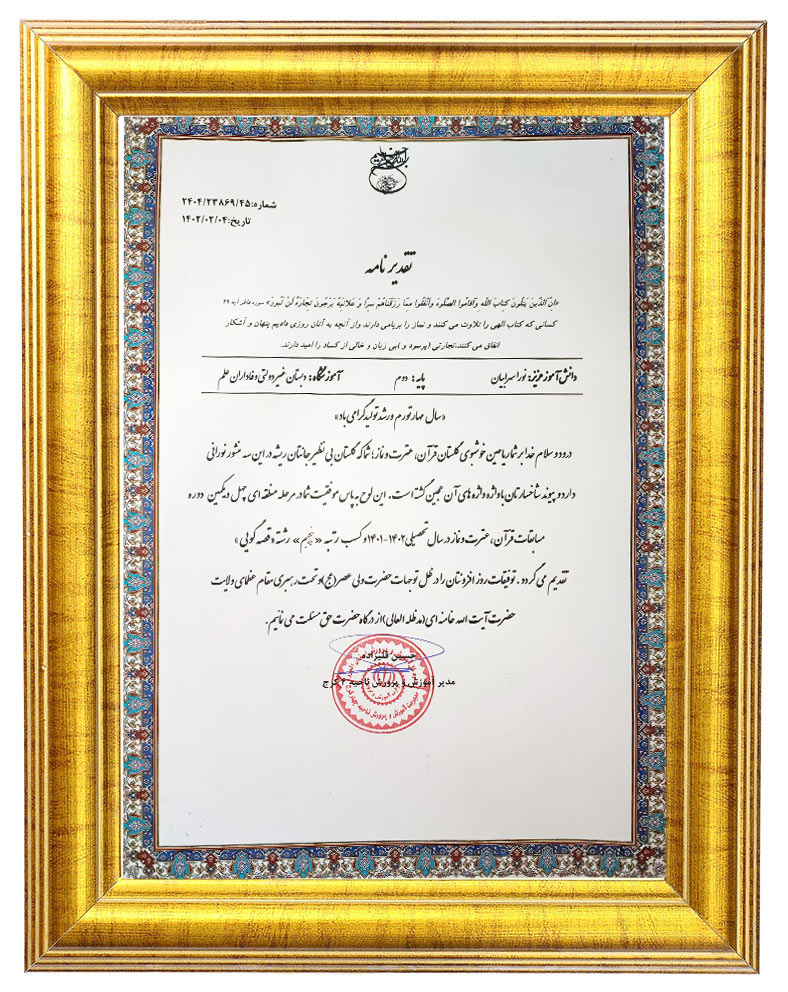 شماره:۲۴۰۴/۲۳۸۶۹/۴۵
تاریخ:۱۴۰۲/۰۲/۰۴
تقدیر نامه
«اِنَّ الَّذینَ یَتلُونَ کِتابَ اللهِ وَ اَقامُوا الصَّلوةَ وَ اَنفَقُوا مِمّا رَزَقناهُم سِرًّا وَ عَلانِیَةً یَرجُونَ تِجارَةً لَن تَبُورَ» سوره فاطر آیه ۲۹
کسانی که کتاب الهی را تلاوت می کنند و نماز را برپامی دارند واز آنچه به آنان روزی دادیم پنهان و آشکار
انفاق می کنند،تجارتی (پرسود و )بی زیان و خالی از کساد را امید دارند.
دانش آموز عزیز: نورا سهرابیان پایه : دوم آموزشگاه: دبستان غیردولتی وفاداران علم
«سال مهار تورم و رشد تولید گرامی باد»
درود و سلام خدا بر شما ریاحین خوشبوی گلستان قرآن، عترت و نماز؛ شما که گلستان بی نظیر جانتان ریشه در این سه منشور نورانی
دارد و پیوند شاخسارتان با واژه واژه های آن عجین گشته است. این لوح به پاس موفقیت شما در مرحله منطقه ای چهل و یکمین دوره
مسابقات قرآن، عترت و نماز در سال تحصیلی ۱۴۰۲-۱۴۰۱ و کسب رتبه « پنجم » رشته «قصه گویی»
تقدیم می گردد . توفیقات روز افزونتان را در ظل توجهات حضرت ولی عصر (عج) و تحت رهبری مقام عظمای ولایت
حضرت آیت الله خامنه ای (مدظله العالی) از درگاه حضرت حق مسئلت می نمائیم.
حسین قلیزاده
مدیر آموزش و پرورش ناحیه ۴ کرج